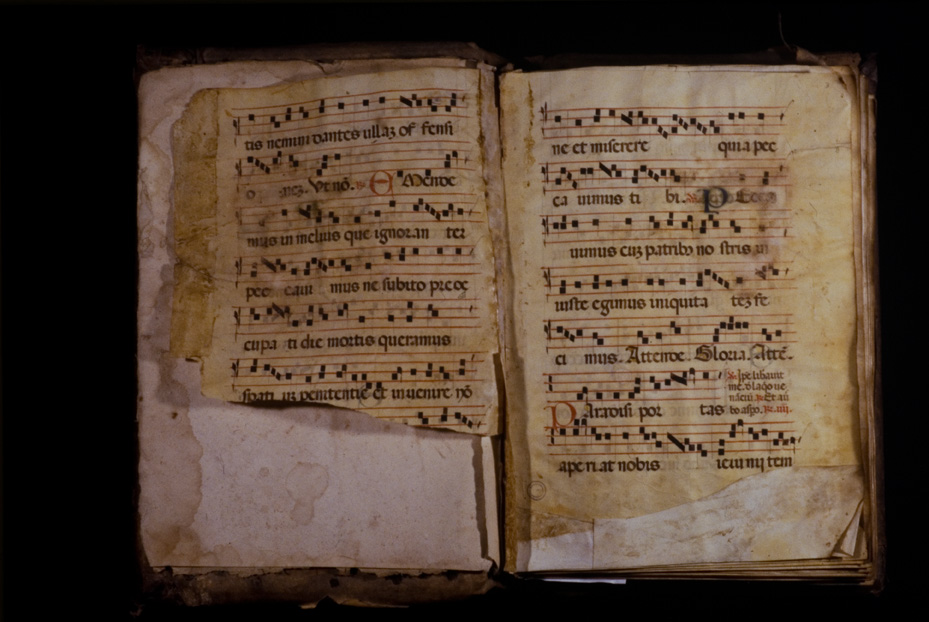 tis nemini dantes ullaʒ of fensi
o neʒ. Ut nō. ℟ E Mende
mus in melius que ignoran ter
pec cavi mus ne subito preoc
cupa ti die mortis queramus
spati uʒ penitentie et invenire nō
ne et miserere quia pec
ca vimus ti bi. ℣ P Ecca
vimus cuʒ patribꝫ no stris in
iuste egimus iniquita teʒ fe
ci mus. Attende. Gloria. Attē.
P Aradisi por tas
aperi at nobis ieiu nij tem